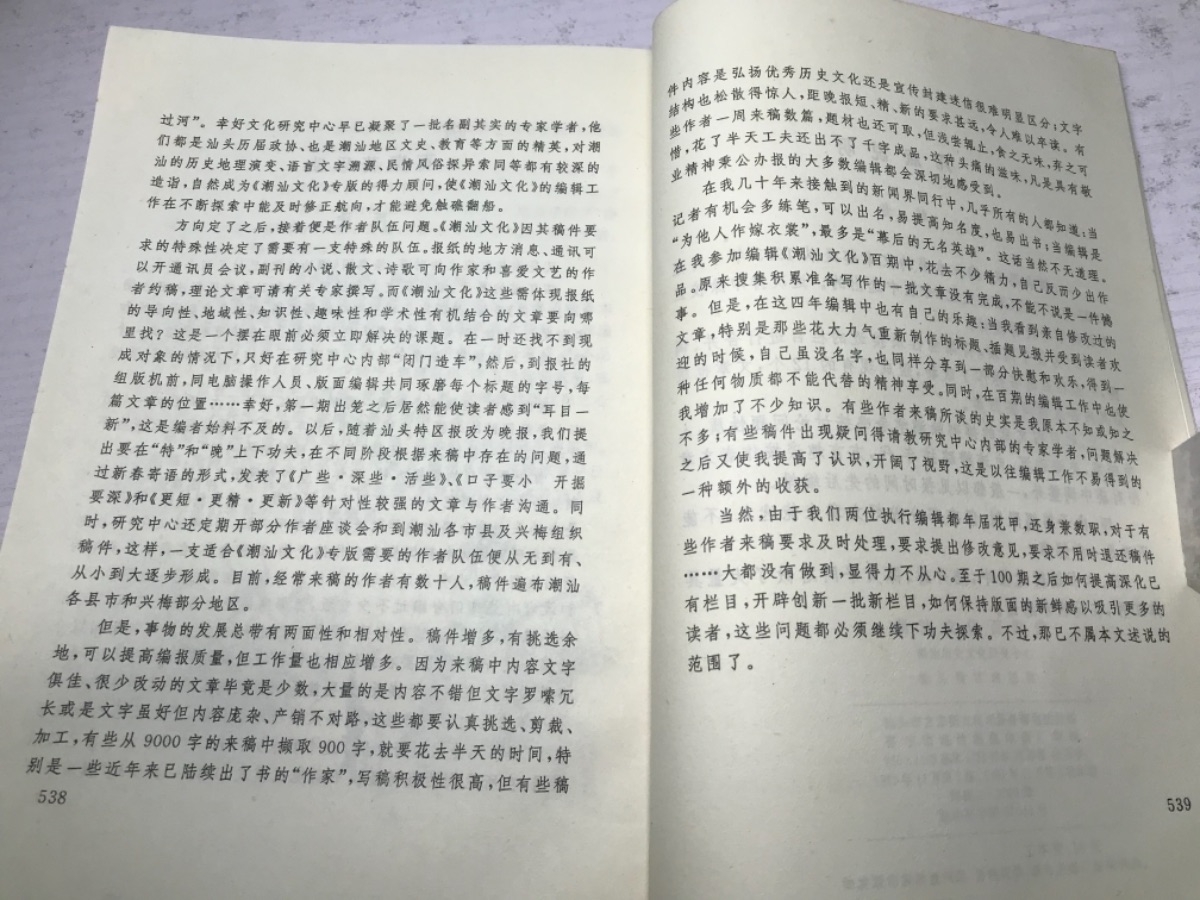 过河”。幸好文化研究中心早已凝聚了一批名副其实的专家学者，他
们都是汕头历届政协、也是潮汕地区文史、教育等方面的精英，对潮
汕的历史地理演变、语言文字溯源、民情风俗探异索同等都有较深的
造诣，自然成为《潮汕文化》专版的得力顾问，使《潮汕文化》的编辑工
作在不断探索中能及时修正航向，才能避免触礁翻船。
方向定了之后，接着便是作者队伍问题。《潮汕文化》因其稿件要
求的特殊性决定了需要有一支特殊的队伍。报纸的地方消息、通讯可
以开通讯员会议，副刊的小说、散文、诗歌可向作家和喜爱文艺的作
者约稿，理论文章可请有关专家撰写。而《潮汕文化》这些需体现报纸
的导向性、地域性、知识性、趣味性和学术性有机结合的文章要向哪
里找？这是一个摆在眼前必须立即解决的课题。在一时还找不到现
成对象的情况下，只好在研究中心内部“闭门造车”，然后，到报社的
组版机前，同电脑操作人员、版面编辑共同琢磨每个标题的字号，每
篇文章的位置……幸好，第一期出笼之后居然能使读者感到“耳目一
新”，这是编者始料不及的。以后，随着汕头特区报改为晚报，我们提
出要在“特”和“晚”上下功夫，在不同阶段根据来稿中存在的问题，通
过新春寄语的形式，发表了《广些·深些·活些》、《口子要小　开掘
要深》和《更短·更精·更新》等针对性较强的文章与作者沟通。同
时，研究中心还定期开部分作者座谈会和到潮汕各市县及兴梅组织
稿件，这样，一支适合《潮汕文化》专版需要的作者队伍便从无到有、
从小到大逐步形成。目前，经常来稿的作者有数十人，稿件遍布潮汕
各县市和兴梅部分地区。
但是，事物的发展总带有两面性和相对性。稿件增多，有挑选余
地，可以提高编报质量，但工作量也相应增多。因为来稿中内容文字
俱佳、很少改动的文章毕竟是少数，大量的是内容不错但文字罗嗦冗
长或是文字虽好但内容庞杂、产销不对路，这些都要认真挑选、剪裁、
加工，有些从9000字的来稿中撷取900字，就要花去半天的时间，特
别是一些近年来已陆续出了书的“作家”，写稿积极性很高，但有些稿
538
件内容是弘扬优秀历史文化还是宣传封建迷信很难明显区分；文字
结构也松散得惊人，距晚报短、精、新的要求甚远，令人难以卒读。有
些作者一周来稿数篇，题材也还可取，但浅尝辄止，食之无味，弃之可
惜，花了半天工夫还出不了千字成品，这种头痛的滋味，凡是具有敬
业精神秉公办报的大多数编辑都会深切地感受到。
在我几十年来接触到的新闻界同行中，几乎所有的人都知道：当
记者有机会多练笔，可以出名，易提高知名度，也易出书；当编辑是
“为他人作嫁衣裳”，最多是“幕后的无名英雄”。这话当然不无道理。
在我参加编辑《潮汕文化》百期中，花去不少精力，自己反而少出作
品。原来搜集积累准备写作的一批文章没有完成，不能不说是一件憾
事。但是，在这四年编辑中也有自己的乐趣：当我看到亲自修改过的
文章，特别是那些花大力气重新制作的标题、插题见报并受到读者欢
迎的时候，自己虽没名字，也同样分享到一部分快慰和欢乐，得到一
种任何物质都不能代替的精神享受。同时，在百期的编辑工作中也使
我增加了不少知识。有些作者来稿所谈的史实是我原本不知或知之
不多；有些稿件出现疑问得请教研究中心内部的专家学者，问题解决
之后又使我提高了认识，开阔了视野，这是以往编辑工作不易得到的
一种额外的收获。
当然，由于我们两位执行编辑都年届花甲，还身兼教职，对于有
些作者来稿要求及时处理，要求提出修改意见，要求不用时退还稿件
……大都没有做到，显得力不从心。至于100期之后如何提高深化已
有栏目，开辟创新一批新栏目，如何保持版面的新鲜感以吸引更多的
读者，这些问题都必须继续下功夫探索。不过，那已不属本文述说的
范围了。
539